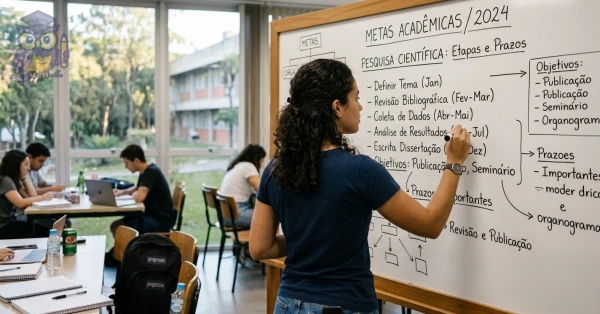 METAS ACADÊMICAS / 2024
METAS
PESQUISA CIENTÍFICA: Etapas e Prazos
- Definir Tema (Jan)
- Revisão Bibliográfica (Fev-Mar)
- Coleta de Dados (Abr-Mai)
- Análise de Resultados -Jul)
- Escrita Dissertação ez)
Objetivos: Publicação, Seminário
Prazos importantes
Revisão e Publicação
Objetivos:
- Publicação
- Publicação
- Seminário
- Organograma
Prazoes
- Importantes
moder drica
e
organograma
JANSPORT